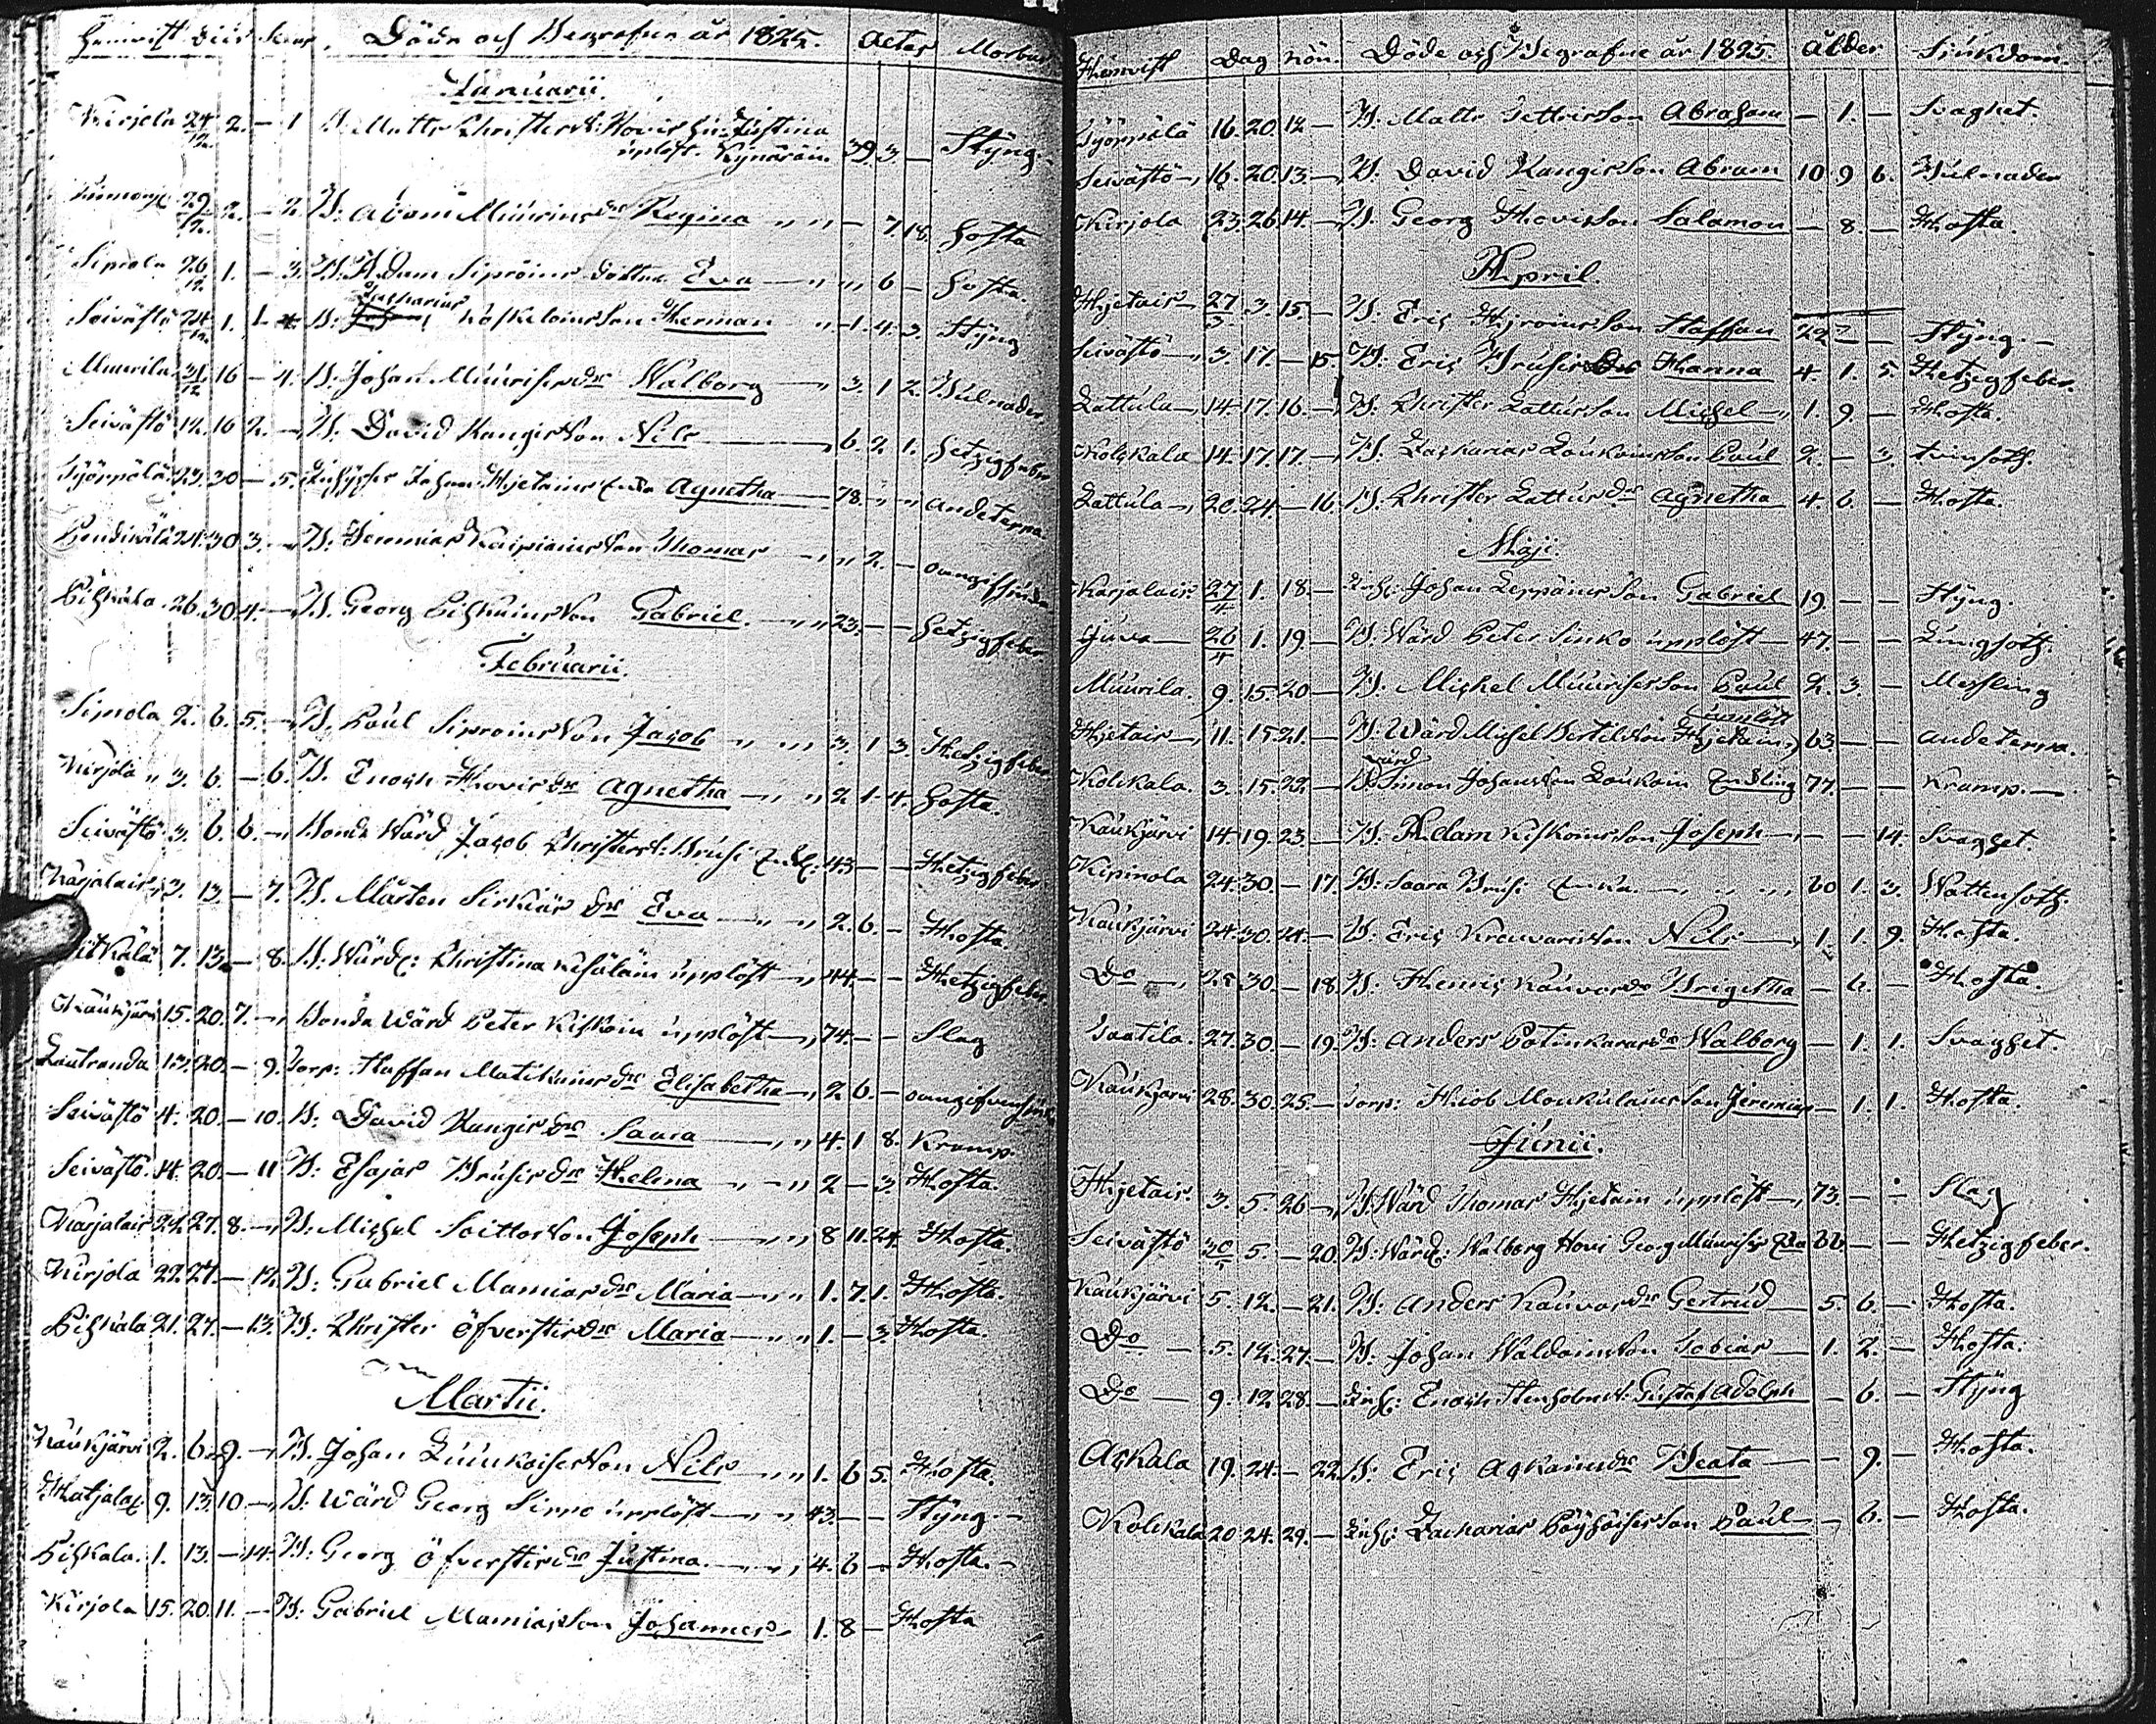 Hemvist Dies Sexus Döde och Begrafne år 1825. Aetas Morbus
Januarii.
Kirjola 24/12 2. — 1 B. Matts Christerss: Hovis hu: Justina
upläst. Kynäräin 39 3 — Styng.
29/12 2. — 2 B: Adam Muurins dr Regina — 7 18. Hosta
Sipola 26/12 1. — 3. B: Adam Sipróins dotter Eva — 6 — Hosta.
Zacharias
Seivästö 24/12 1. 1 B: Koskelains Son Herman — 1. 4. 3. Styng
Muurila 31/12 16 — 4. B. Johan Muurises dr Walborg — 3. 1 2. Bulnader.
Seivästö 12. 16 2. — B. David Kangis Son Nils — 6. 2. 1. Hetzigfeber
Työppölä 23. 30 — 5. Inhyses Johan Hjetains Enka Agnetha — 78. Andetäppa
24. 30 3. — B. Jeremias Kaipiains Son Thomas — 2. —
Pihkala 26. 30 4. — B. Georg Pihkains Son Gabriel. — 23. — — Hetzigfeber
Februarii.
Sipola 2. 6. 5. — B. Paul Siproins Son Jacob — 3. 1 3. Hetzigfeber
Kirjola 3. 6. — 6. B. Enoch Hovis dr Agnetha — 2 1. 4. Hosta.
Seivästö 3. 6. 6. — Bonde Wärd Jacob Christerss: Brusi Enkl: 43 — — Hetzigfeber
Karjalais 3. 13. — 7. B. Mårten Sirkiäs dr Eva — 2. 6. — Hosta.
7. 13. — 8. B. Wärd: Christina Kesäläin upläst — 44 — — Hetzigfeber
Kaukjärvi 15. 20. 7. — Bonde Wärd Peter Kiskoin upläst — 74. — — Slag
Lautranda 13. 20. — 9. Torp: Staffan Matikains dr Elisabetha — 2 6. —
Seivästö 4. 20. — 10. B. David Kangis dr Saara — 4. 1 8. Kramp.
Seivästö. 14. 20. — 11 B: Esajas Brusis dr Helena — 2 — 3. Hosta.
Karjalais 22. 27. 8. — B: Michel Soittos Son Joseph — 8 11. 24. Hosta.
Kirjola 22. 27. — 12. B: Gabriel Mamias dr Maria — 1. 7. 1. Hosta.
Pihkala 21. 27. — 13. B: Christer Öfverstis dr Maria — 1. — 3. Hosta.
Martii.
Kaukjärvi 2. 6. 9. — B. Johan Luukaises Son Nils — 1. 6 5. Hosta.
Hatjalax. 9. 13. 10 — B. Wärd Georg Sippo upläst — 43. — — Styng. —
Pihkala. 1. 13. — 14. B: Georg Öfverstis dr Justina — 4. 6 — Hosta. —
Kirjola 15. 20. 11. — B: Gabriel Mamias Son Johannes 1. 8 — Hosta
Hemvist Dag kön. Döde och Begrafne år 1825. Ålder Siukdom.
Työppölä 16. 20. 12 — B: Matts Pettris Son Abraham — 1. — Svaghet.
Seivästö — 16. 20. 13. — B. David Kangis Son Abram 10 9 6. Bulnader
Kirjola 23. 26. 14. — B. Georg Hovis Son Salamon — 8. — Hosta.
April.
Hjetais 27/3 3. 15. — B. Eric Hyroins Son Staffan 22 — — Styng. —
Seivästö — 3. 17. — 15 B: Eric Brusis Dr Hanna 4. 1. 5. Hetzigfeber.
Lattula — 14. 17. 16. — B. Christer Lattus Son Michel — 1. 9. — Hosta.
Kolckala 14. 17. 17. — B. Zacharias Loukoins Son Paul 2. — 3. tvinsoth.
Lattula — 20. 24. — 16. B. Christer Lattus dr Agnetha 4. 6. — Hosta.
Maji.
Karjalais 27/4 1. 18. — Inh: Johan Leppäins Son Gabriel 19. — — Styng.
Juva — 26/4 1. 19. — B. Wärd Peter Sinko upläst — 47. — — Lungsoth.
Muurila. 9. 15. 20 — B. Michel Muurises Son Paul 2. 3. — Messling
upläst
Hjetais — 11. 15. 21. — B: Wärd Michel Bertilsson Hjetain, 63. — — Andetäppa.
wärd
Kolckala. 3. 15. 22. — B Simon Johansson Loukoin Enkling 77. — — Kramp. —
Kaukjärvi 14. 19. 23. — B. Adam Kiskoins Son Joseph — — — 14. Svaghet.
Kipinola 24. 30. — 17. B: Saara Brusi Enka — 60 1. 3. Wattensoth.
Kaukjärvi 24. 30. 24. — B: Eric Kauvaris Son Nils — 1. 1. 9. Hosta.
Do — 25. 30. — 18. B. Henric Kauvos dr Brigitha — 6. — Hosta.
Vaatila. 27. 30. — 19. B: Anders Potinkaras dr Walborg — 1. 1. Svaghet.
Kaukjärvi 28. 30. 25. — Torp: Hiob Moukulains Son Jeremias — 1. 1. Hosta.
Junii.
Hjetais 3. 5. 26 — B. Wärd Thomas Hjetain upläst — 73. — — Slag
Seivästö 5. — 20. B: Wärd: Walborg Hovi Georg Muurises Ea 66 — — Hetzigfeber.
Kaukjärvi 5. 12. — 21. B. Anders Kauvos dr Gertrud — 5. 6. — Hosta.
Do — 5. 12. 27. — B. Johan Waldains Son Tobias — 1. 2. — Hosta.
Do — 9. 12 28. — Inh: Enoch Stenholms S: Gustaf Adolph — 6. — Styng
Ackala 19. 24. — 22 B: Eric Ackains dr Beata — — 9. — Hosta.
Kolckala 20. 24. 29. — Inh: Zacharias Pöyhöises Son Paul — 6. — Hosta.